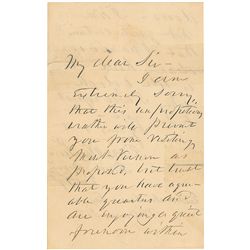 My dear Sir -
I am
Extremely sorry,
that this unpropitious
weather will prevent
you from visiting
Mount Vernon as
proposed, but trust
that you have agree-
able quarters and
are enjoying a quiet
forenoon within